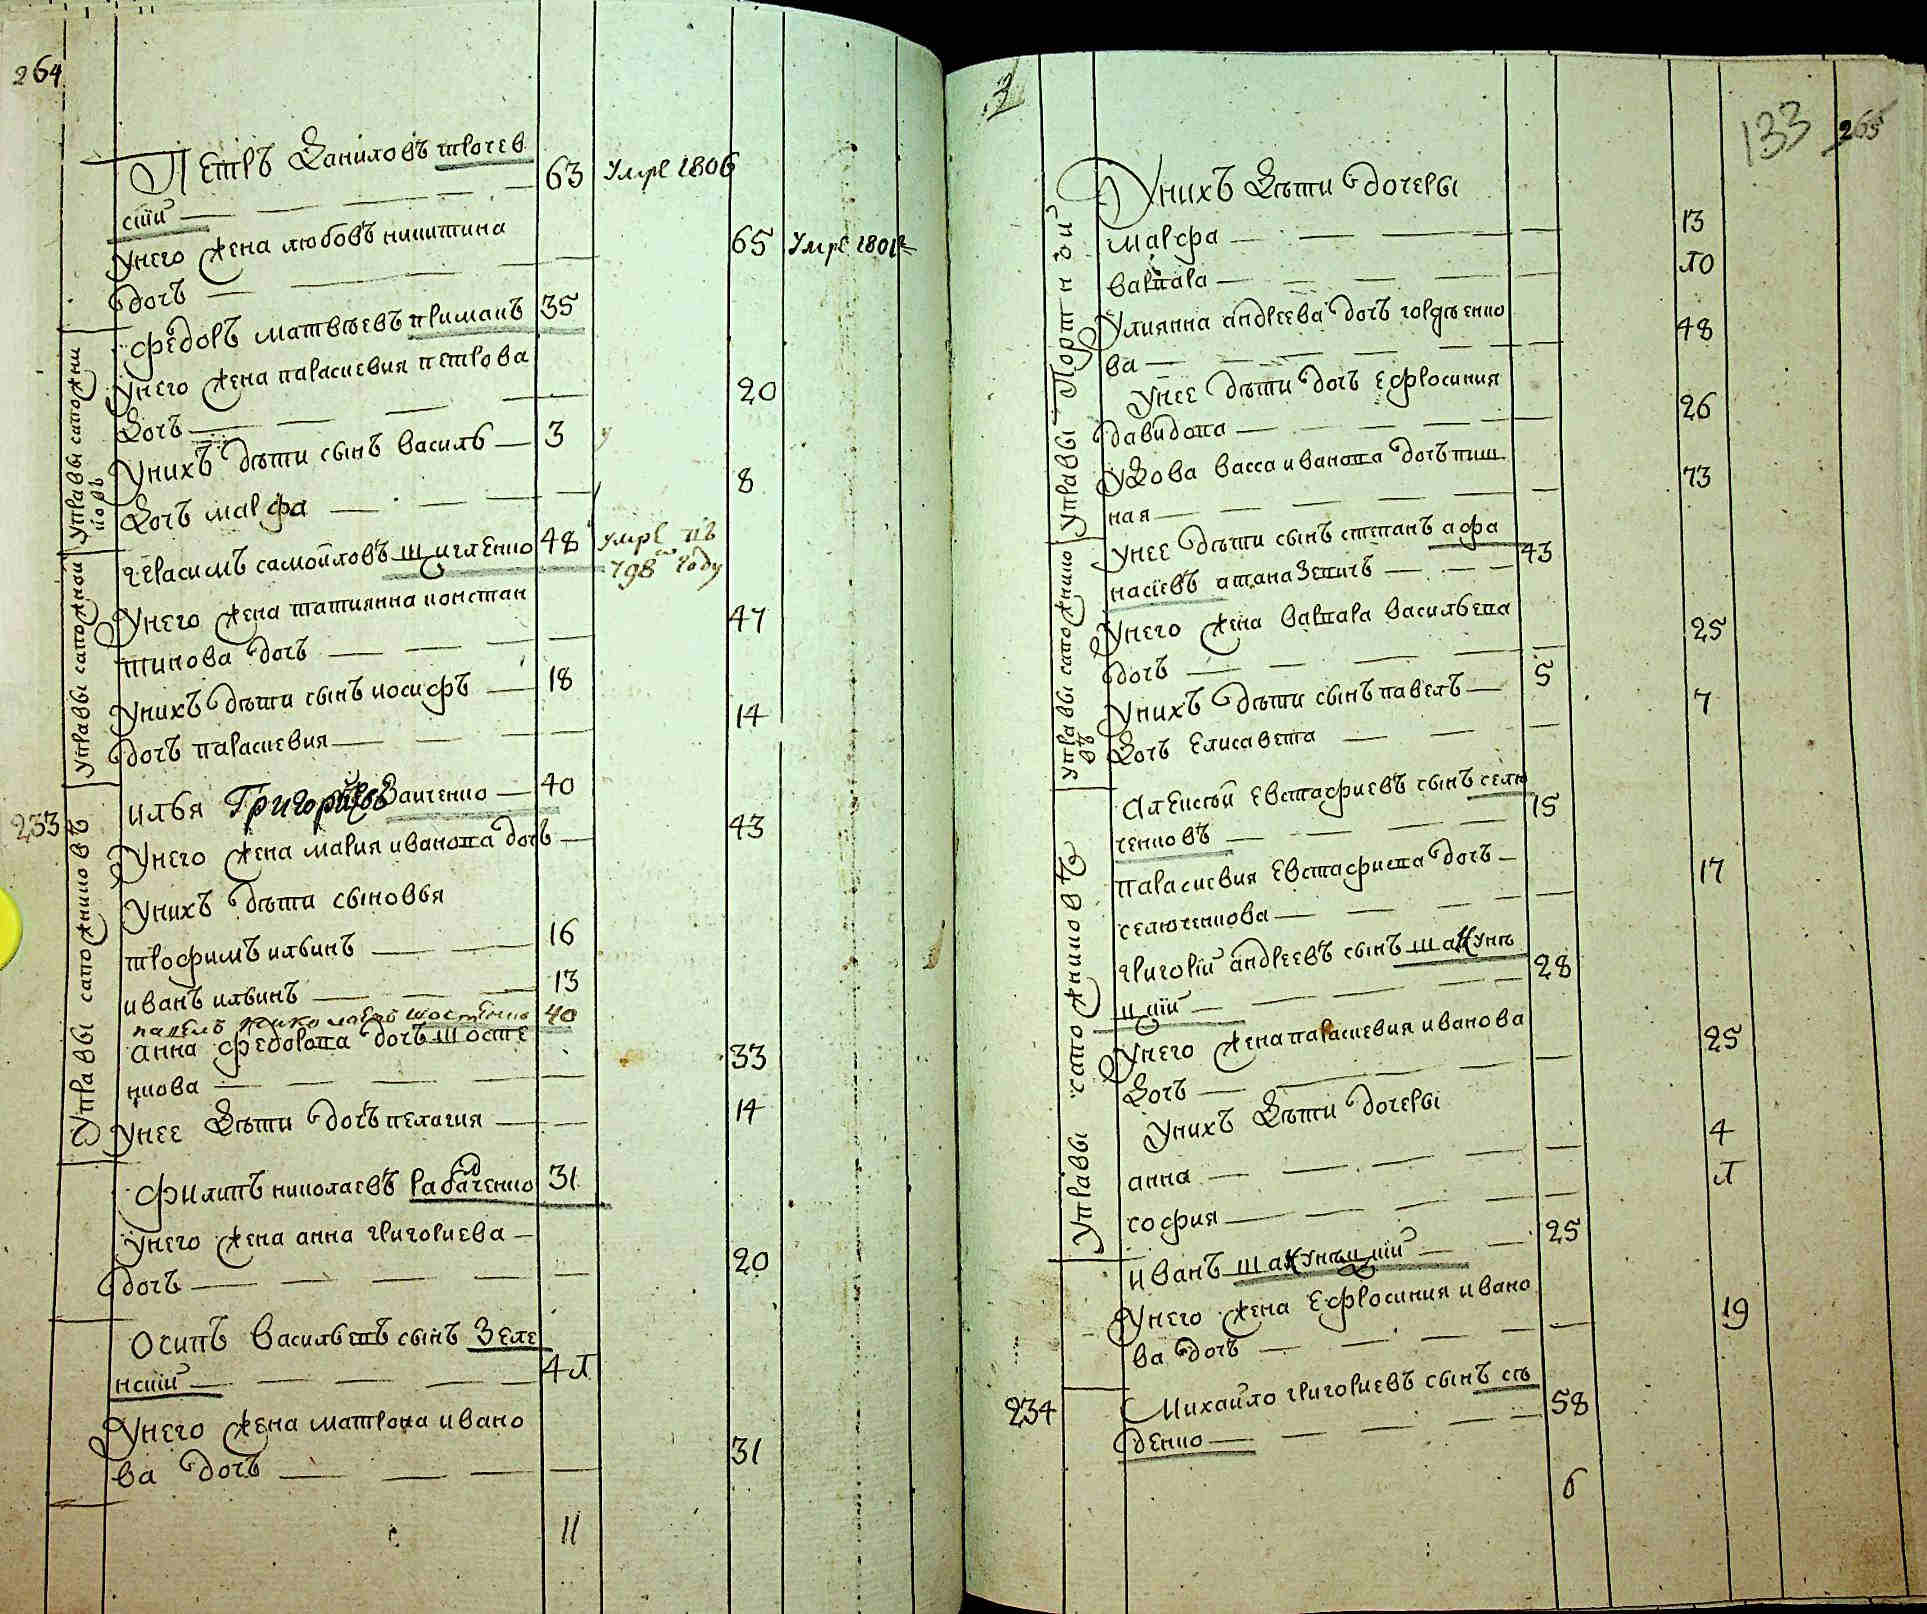 264
Петръ Даниловъ трочев
ский 63 умре 1806
Унего жена любовь никитина
дочь 65 умре 1801г
Федоръ матвѣевъ примакъ 35
Унего жена параскевия петрова
Дочь 20
Унихъ дѣти сынъ василь 3
Дочь марфа 8
управы сапожни
ковъ
герасимъ самойловъ щигленко 48 умре въ
798м году
Унего жена татиянна констан
тинова дочь 47
Унихъ дѣти сынъ иосифъ 18
дочь параскевия 14
управы сапожной
233
илья Григорьевъ заиченко 40
Унего жена мария иванова дочь 43
Унихъ дѣти сыновья
трофимъ ильинъ 16
иванъ ильинъ 13
павелъ шостенко 40
анна федорова дочь шосте
нкова 33
Унее Дѣти дочь пелагия 14
Управы сапожниковъ
Филипъ николаевъ рабаченко 31
Унего жена анна григориева
дочь 20
Осипъ васильевъ сынъ Зеле
нский 4л
Унего жена матрона ивано
ва дочь 31
11
133 265
Унихъ Дѣти дочеры
марфа 13
варвара л0
Улиянна андреева дочь гордѣенко
ва 48
Унее дѣти дочь ефросиния
давидова 26
Удова васса иванова дочь пиш
ная 73
управы портной
Унее дѣти сынъ степанъ афа
насіевъ атаназевичъ 43
Унего жена варвара васильева
дочь 25
Унихъ дѣти сынъ павелъ 5
Дочь елисавета 7
управы сапожнико
въ
Алексѣй евстафиевъ сынъ селю
ченковъ 15
параскевия евстафиева дочь
селюченкова 17
григорій андреевъ сынъ шакунѣ
цкій 28
Унего жена параскевия иванова
Дочь 25
Унихъ Дѣти дочеры
анна 4
софия л
управы сапожниковъ
иванъ шакунѣцкій 25
Унего жена ефросиния ивано
ва дочь 19
234
Михайло григориевъ сынъ сѣ
денко 58
6